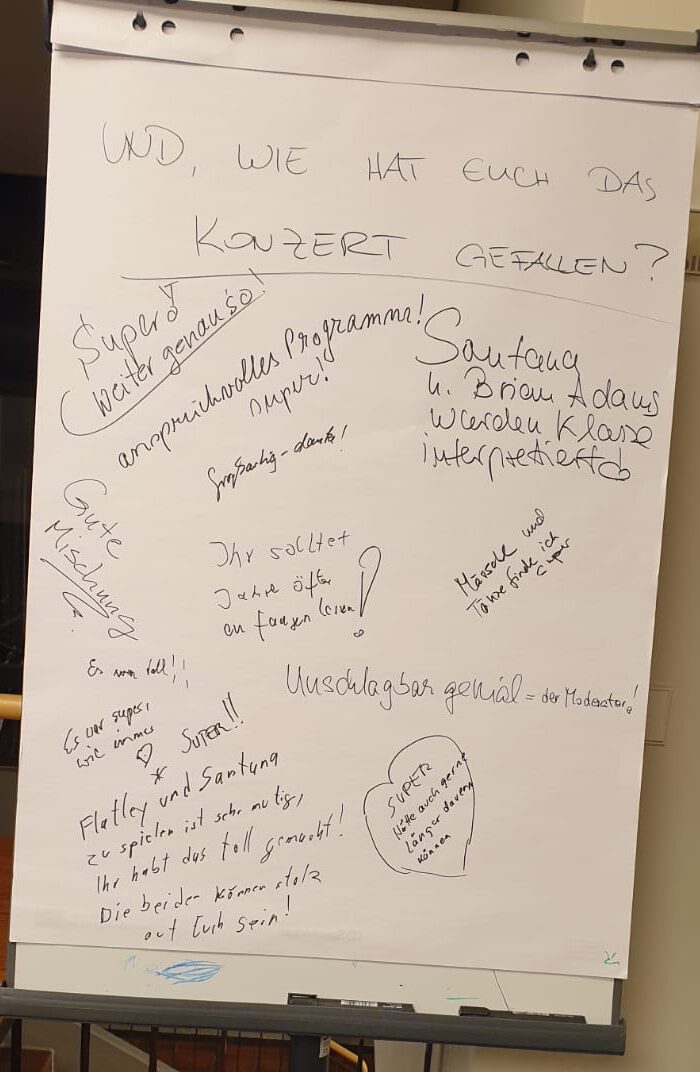 UND, WIE HAT EUCH DAS
KONZERT GEFALLEN?
Super!
Weiter genauso!
anspruchvolles Programm!
super!
Santana
u. Brian Adams
wurden Klasse
interpretiert
Großartig - danke!
Gute
Mischung
Ihr solltet
öfter
Märsche und
Tänze finde ich
super
Es war toll!!
Unschlagbar genial = der Moderator!
Es war super,
wie immer
SUPER!!
Flatley und Santana
zu spielen ist sehr mutig,
Ihr habt das toll gemacht!
Die beiden können stolz
auf Euch sein!
SUPER
Hätte auch gerne
länger dauern
können